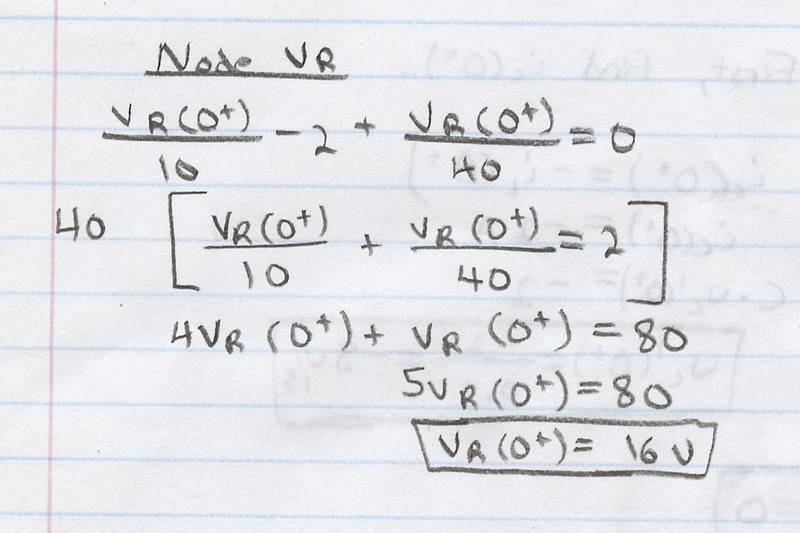 Node VR
VR(0⁺)/10 - 2 + VR(0⁺)/40 = 0
40 [VR(0⁺)/10 + VR(0⁺)/40 = 2]
4VR(0⁺) + VR(0⁺) = 80
5VR(0⁺) = 80
VR(0⁺) = 16 V